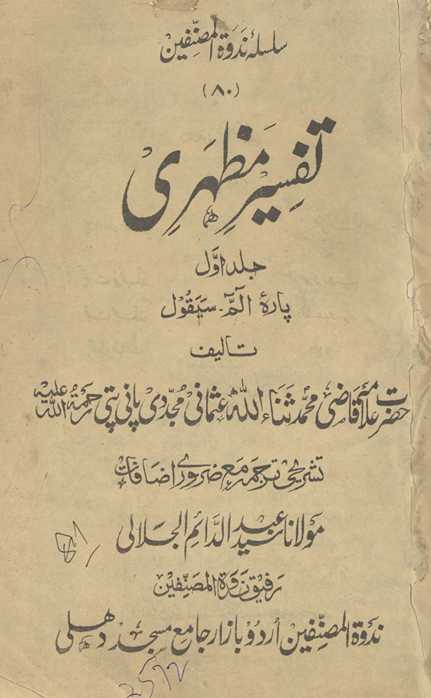 سلسلۂ ندوۃ المصنّفین
(۸۰)
تفسیر مظہری
جلد اوّل
پارۂ الٓمّٓ۔ سیقول
تالیف
حضرت علامہ قاضی محمد ثناء اللہ عثمانی مجدّدی پانی پتی رحمۃ اللہ علیہ
تشریحی ترجمہ مع ضروری اضافات
مولانا سید عبد الدائم الجلالی
رفیق ندوۃ المصنّفین
ندوۃ المصنّفین اُردو بازار جامع مسجد دہلی